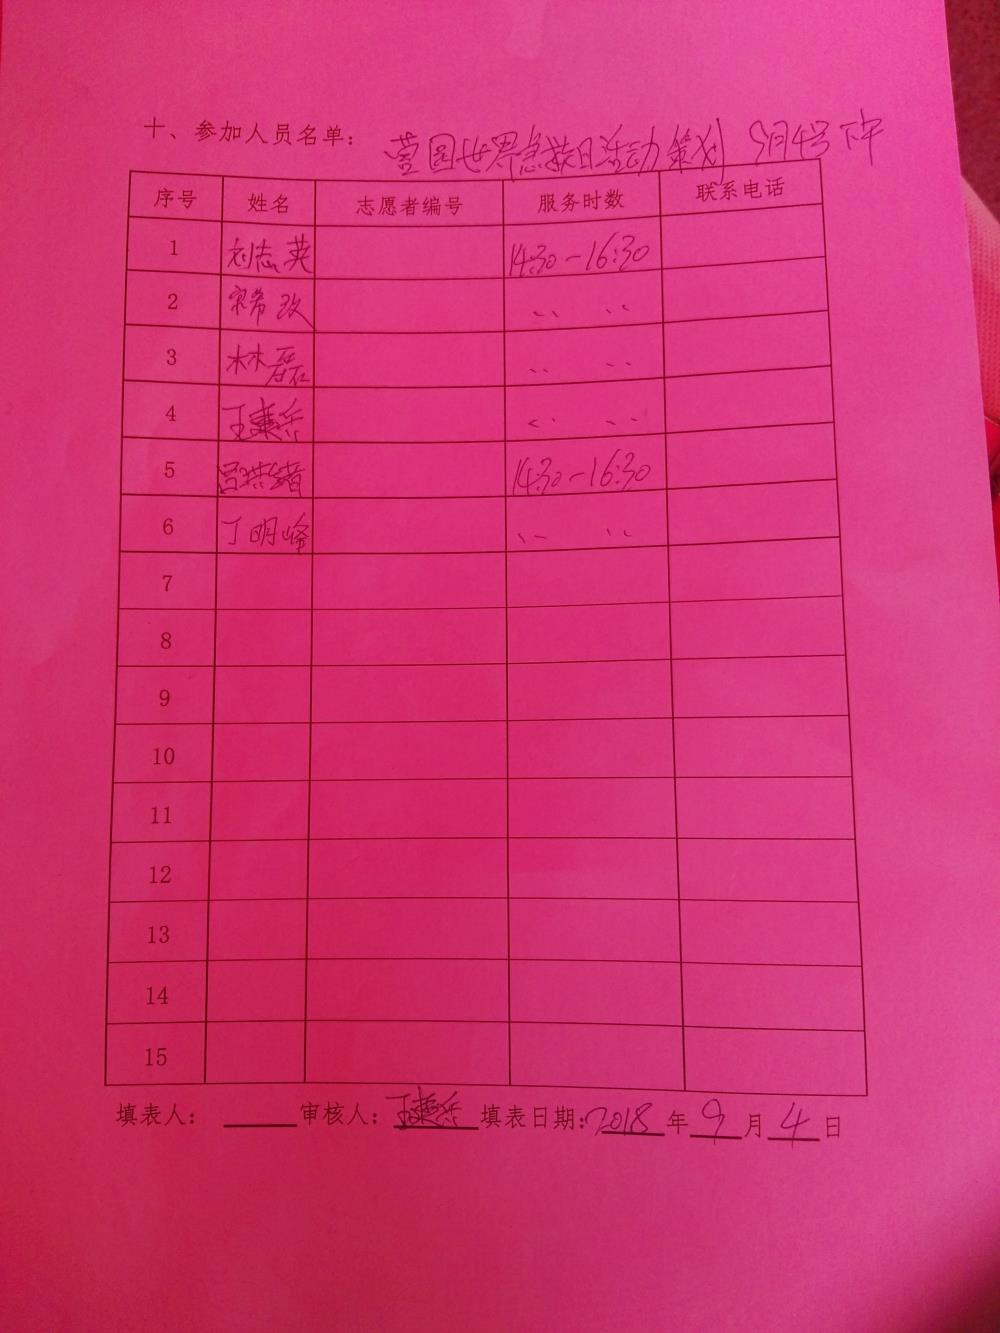 十、参加人员名单： 营园世界急救日活动策划 9月4号下午
序号 姓名 志愿者编号 服务时数 联系电话
1 刘志英 14:30-16:30
2 〃 〃
3 林磊 〃 〃
4 〃 〃
5 14:30-16:30
6 丁明峰 〃 〃
7
8
9
10
11
12
13
14
15
填表人： 审核人： 填表日期：2018年9月4日